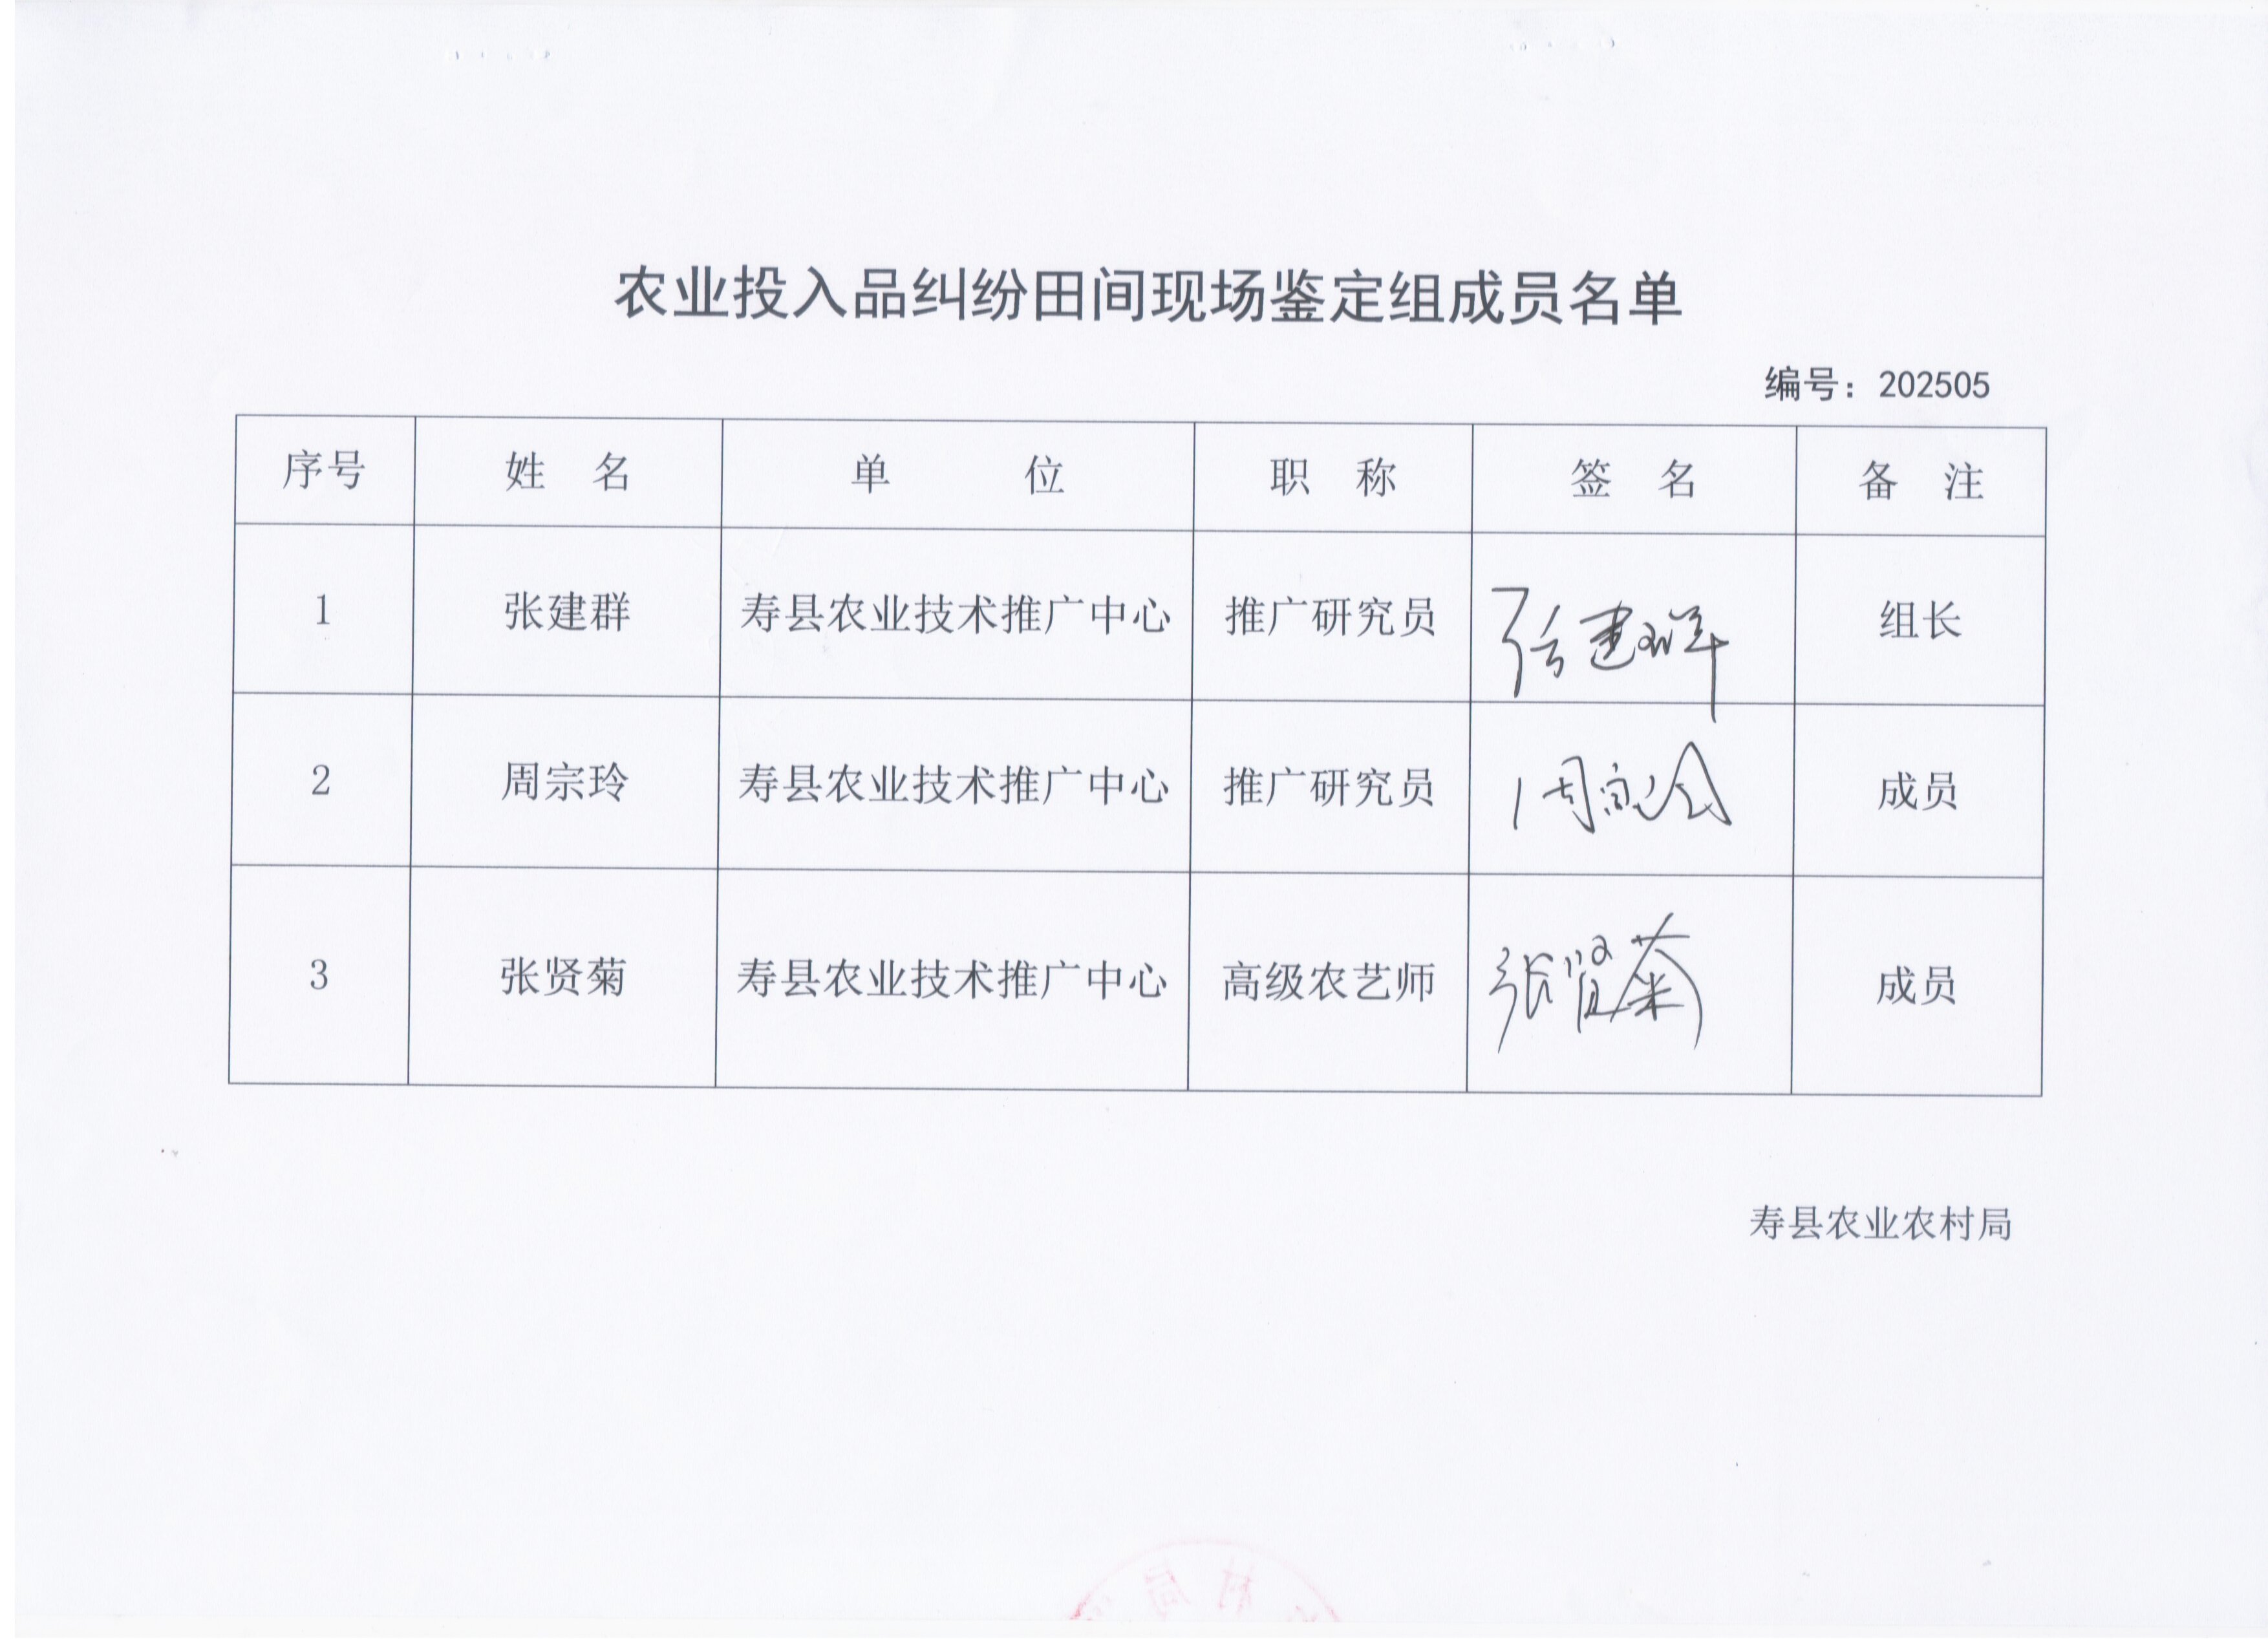 农业投入品纠纷田间现场鉴定组成员名单
编号：202505
序号 姓 名 单 位 职 称 签 名 备 注
1 张建群 寿县农业技术推广中心 推广研究员 张建群 组长
2 周宗玲 寿县农业技术推广中心 推广研究员 周宗玲 成员
3 张贤菊 寿县农业技术推广中心 高级农艺师 张贤菊 成员
寿县农业农村局
村局